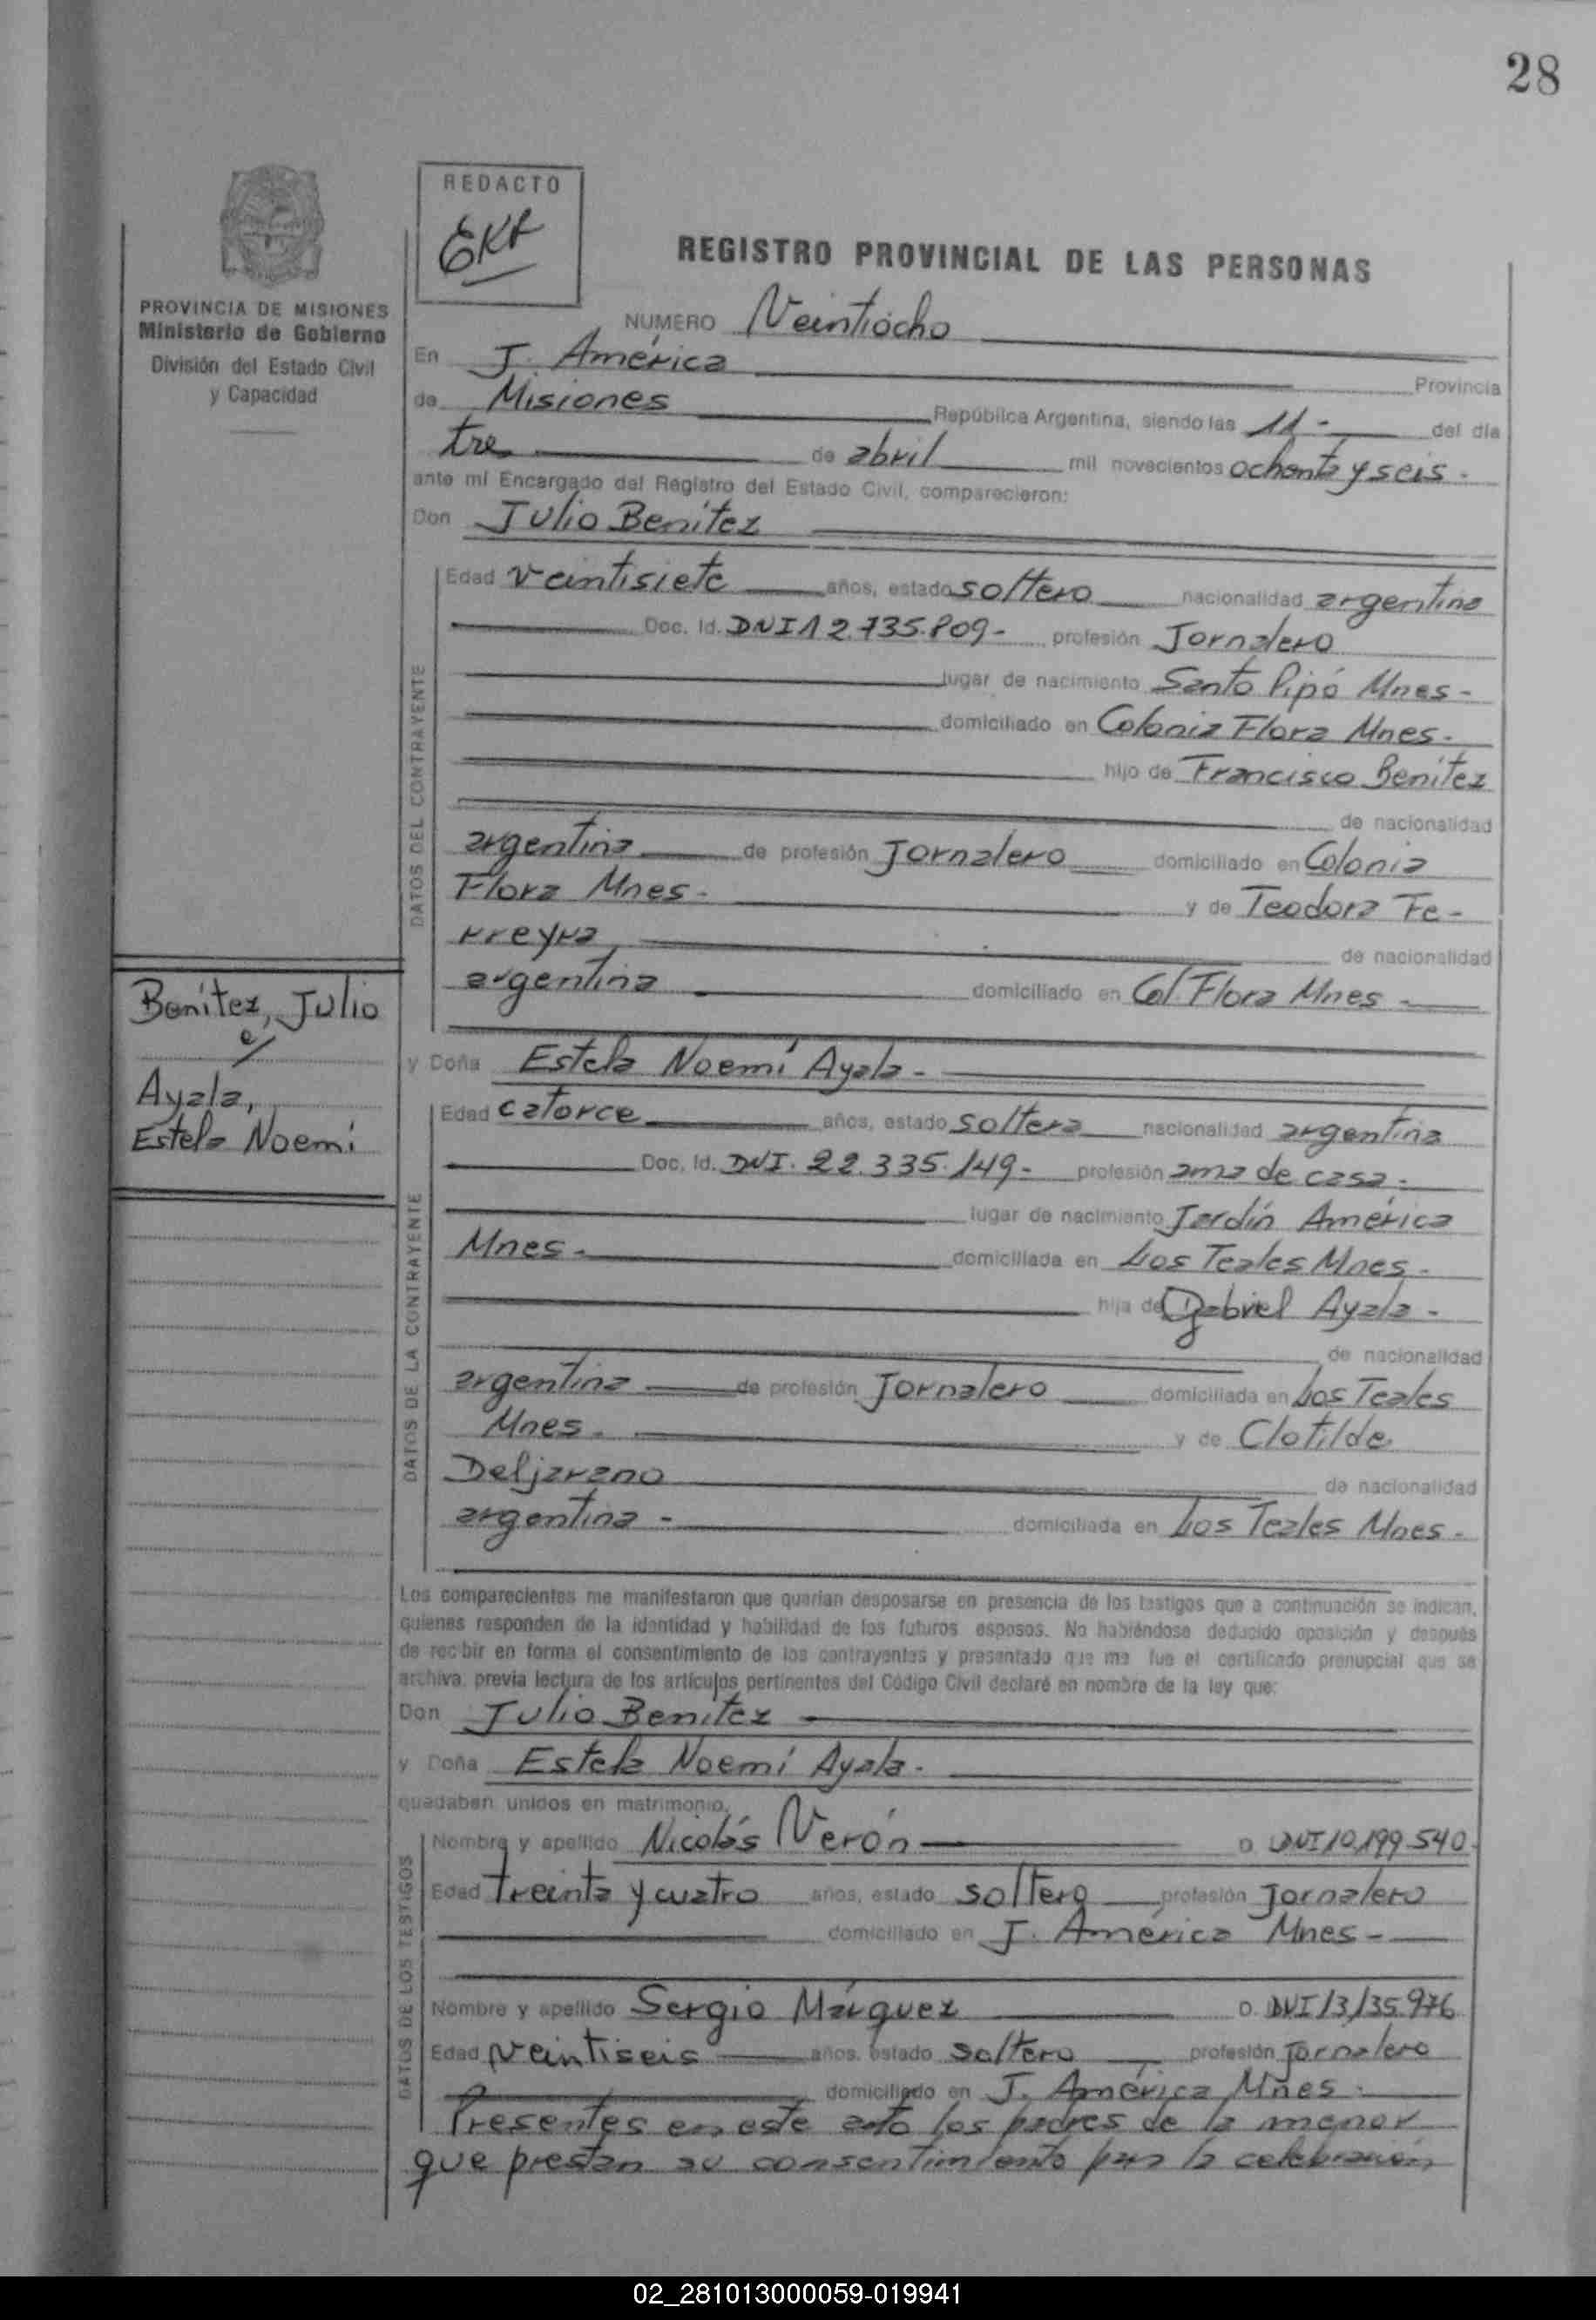 28
REDACTO
EKA
PROVINCIA DE MISIONES
Ministerio de Gobierno
División del Estado Civil
y Capacidad
REGISTRO PROVINCIAL DE LAS PERSONAS
NUMERO Veintiocho
En J. América Provincia
de Misiones República Argentina, siendo las 11- del día
tres de abril mil novecientos ochenta y seis.
ante mí Encargado del Registro del Estado Civil, comparecieron:
Don Julio Benítez
DATOS DEL CONTRAYENTE
Edad veintisiete años, estado soltero nacionalidad argentina
Doc. Id. DNI 12.735.809- profesión Jornalero
lugar de nacimiento Santo Pipó Mnes-
domiciliado en Colonia Flora Mnes.
hijo de Francisco Benítez
de nacionalidad
argentina de profesión Jornalero domiciliado en Colonia
Flora Mnes- y de Teodora Fe-
rreyra de nacionalidad
argentina domiciliado en Col. Flora Mnes-
Benítez, Julio
c/
Ayala,
Estela Noemí
y Doña Estela Noemí Ayala-
DATOS DE LA CONTRAYENTE
Edad catorce años, estado soltera nacionalidad argentina
Doc. Id. DNI. 22.335.149- profesión ama de casa.
lugar de nacimiento Jardín América
Mnes- domiciliada en Los Teales Mnes.
hija de Gabriel Ayala-
de nacionalidad
argentina de profesión Jornalero domiciliada en Los Teales
Mnes. y de Clotilde
Deljarano de nacionalidad
argentina- domiciliada en Los Teales Mnes-
Los comparecientes me manifestaron que querían desposarse en presencia de los testigos que a continuación se indican,
quienes responden de la identidad y habilidad de los futuros esposos. No habiéndose deducido oposición y después
de recibir en forma el consentimiento de los contrayentes y presentado que me fue el certificado prenupcial que se
archiva, previa lectura de los artículos pertinentes del Código Civil declaré en nombre de la ley que:
Don Julio Benítez
y Doña Estela Noemí Ayala.
quedaban unidos en matrimonio.
DATOS DE LOS TESTIGOS
Nombre y apellido Nicolás Verón D. DNI 10.199.540
Edad treinta y cuatro años, estado soltero profesión Jornalero
domiciliado en J. América Mnes-
Nombre y apellido Sergio Márquez D. DNI 13.135.976
Edad veintiseis años, estado soltero profesión Jornalero
domiciliado en J. América Mnes.
Presentes en este acto los padres de la menor
que prestan su consentimiento para la celebración
02_281013000059-019941